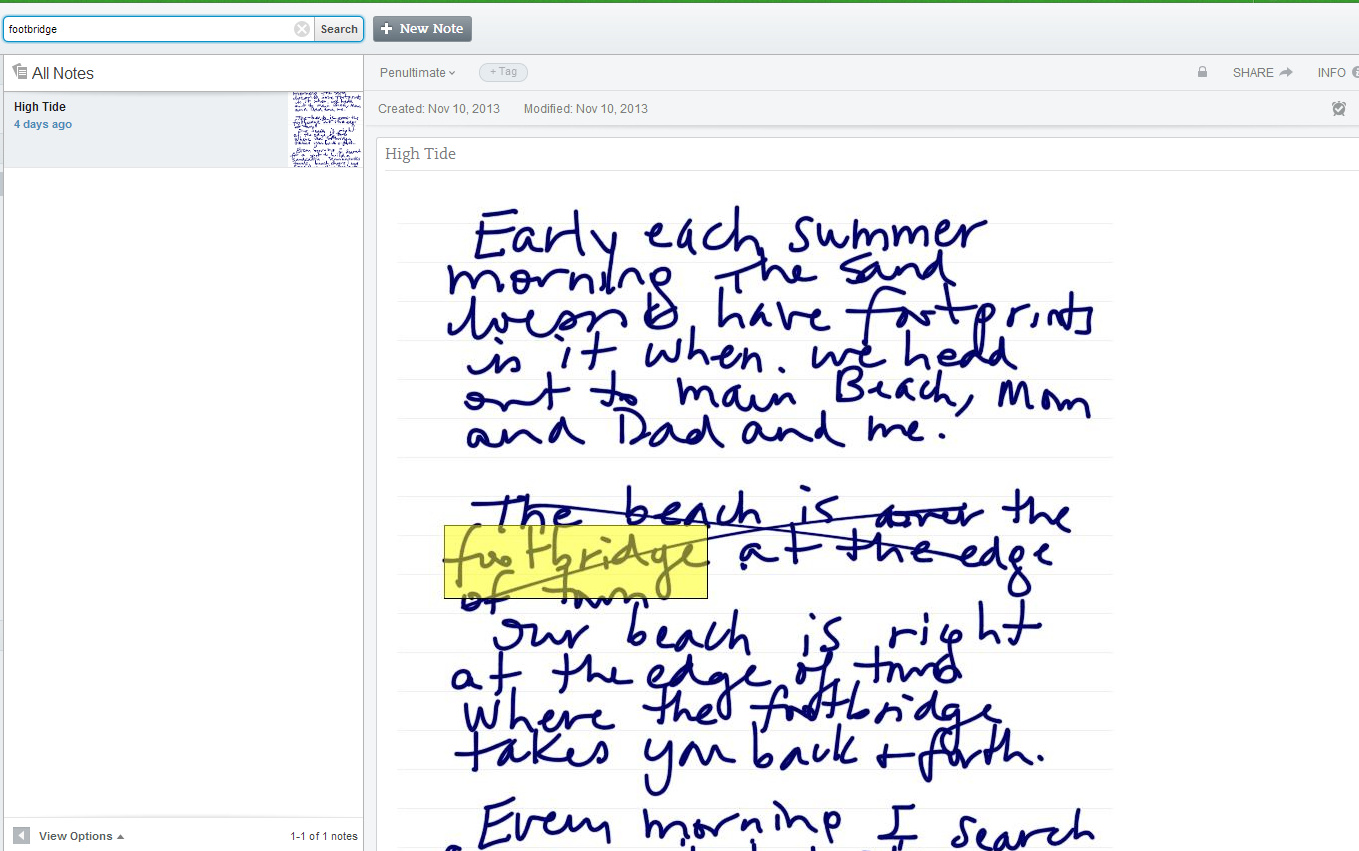 footbridge
Search
+ New Note
All Notes
Penultimate
+ Tag
SHARE
INFO
High Tide
4 days ago
Created: Nov 10, 2013 Modified: Nov 10, 2013
High Tide
Early each summer
morning The sand
doesn't have footprints
in it when we head
out to main Beach, Mom
and Dad and me.
The beach is over the
footbridge at the edge
of town
Our beach is right
at the edge of town
where the footbridge
takes you back + forth.
Every morning I search
View Options
1-1 of 1 notes